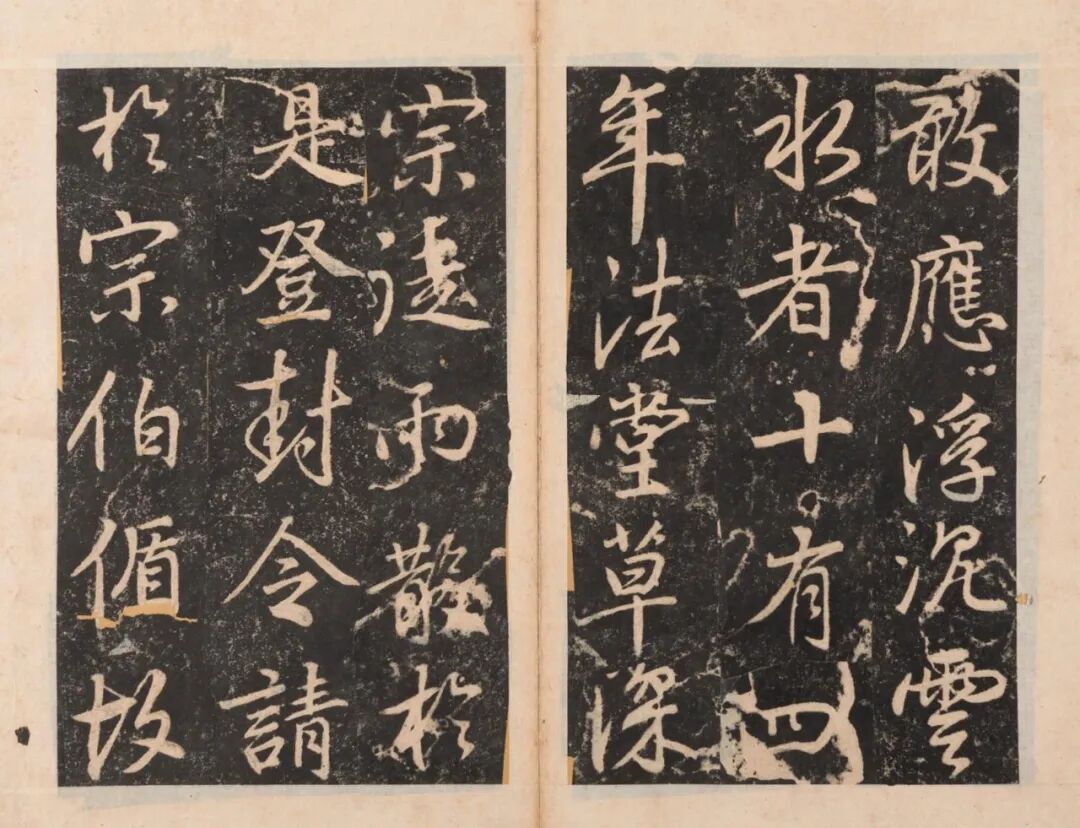 敢應浮泥雲
水者十有四
年法堂草深
宗徒雨散於
是登封令請
於宗伯循故